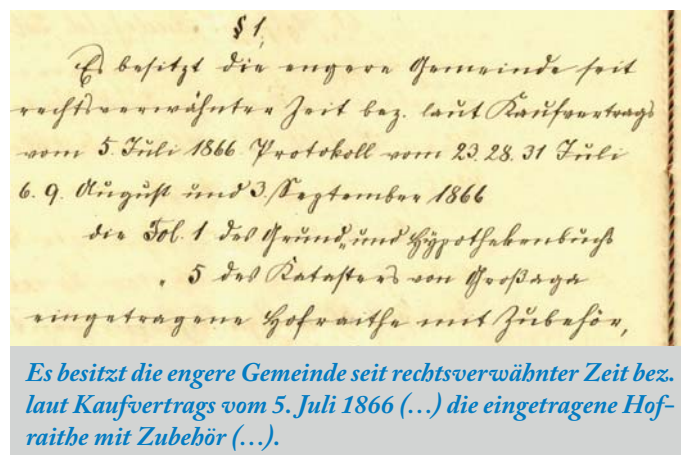 § 1.
Es besitzt die engere Gemeinde seit
rechtsverwähnter Zeit bez. laut Kaufvertrags
vom 5. Juli 1866 Protokoll vom 23. 28. 31 Juli
6. 9. August und 3. September 1866
die Fol. 1 des Grund- und Hypothekenbuchs
" 5 des Katasters von Großaga
eingetragene Hofraithe mit Zubehör,
Es besitzt die engere Gemeinde seit rechtsverwähnter Zeit bez.
laut Kaufvertrags vom 5. Juli 1866 (…) die eingetragene Hof-
raithe mit Zubehör (…).